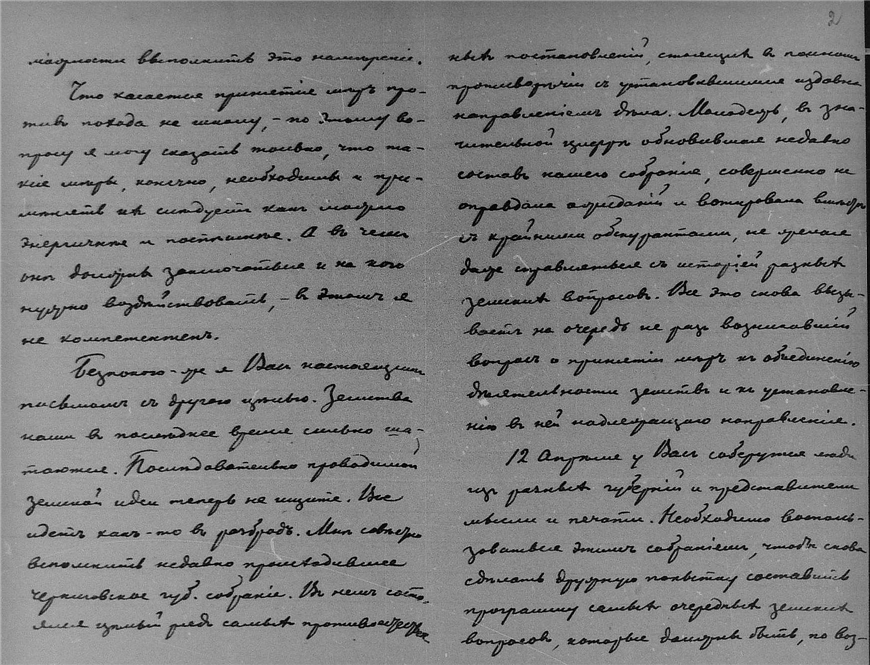 можности выполнить это намѣреніе.
Что касается принятія мѣръ про-
тивъ похода на школу, – по этому во-
просу я могу сказать только, что та-
кія мѣры, конечно, необходимы и при-
мѣнять ихъ слѣдуетъ какъ можно
энергичнѣе и поспѣшнѣе. А въ чемъ
онѣ должны заключаться и на кого
нужно воздѣйствовать, – въ этомъ я
не компетентенъ.
Безпокою-же я Васъ настоящимъ
письмомъ съ другою цѣлью. Земства
наши въ послѣднее время сильно ша-
таются. Послѣдовательно проводимой
земской идеи теперь не ищите. Все
идетъ какъ-то въ разбродъ. Мнѣ
вспомнить недавно происходившее
черниговское губ. собраніе. Въ немъ состо-
ялся цѣлый рядъ самыхъ
2
ныхъ постановленій, стоящихъ въ полномъ
противорѣчіи съ установившимся издавна
направленіемъ дѣла. Молодежь, въ зна-
чительной цифрѣ обновившая недавно
составъ нашего собранія, совершенно не
оправдала ожиданій и вотировала вмѣстѣ
съ крайними обскурантами, не желая
даже справляться съ исторіей разныхъ
земскихъ вопросовъ. Все это снова вызы-
ваетъ на очередь не разъ возникавшій
вопросъ о принятіи мѣръ къ объединенію
дѣятельности земствъ и къ установле-
нію въ ней надлежащаго направленія.
12 Апрѣля у Васъ соберутся люди
изъ разныхъ губерній и представители
мысли и печати. Необходимо восполь-
зоваться этимъ собраніемъ, чтобы снова
сдѣлать дружную попытку составить
программу самыхъ очередныхъ земскихъ
вопросовъ, которые должны быть, по воз-